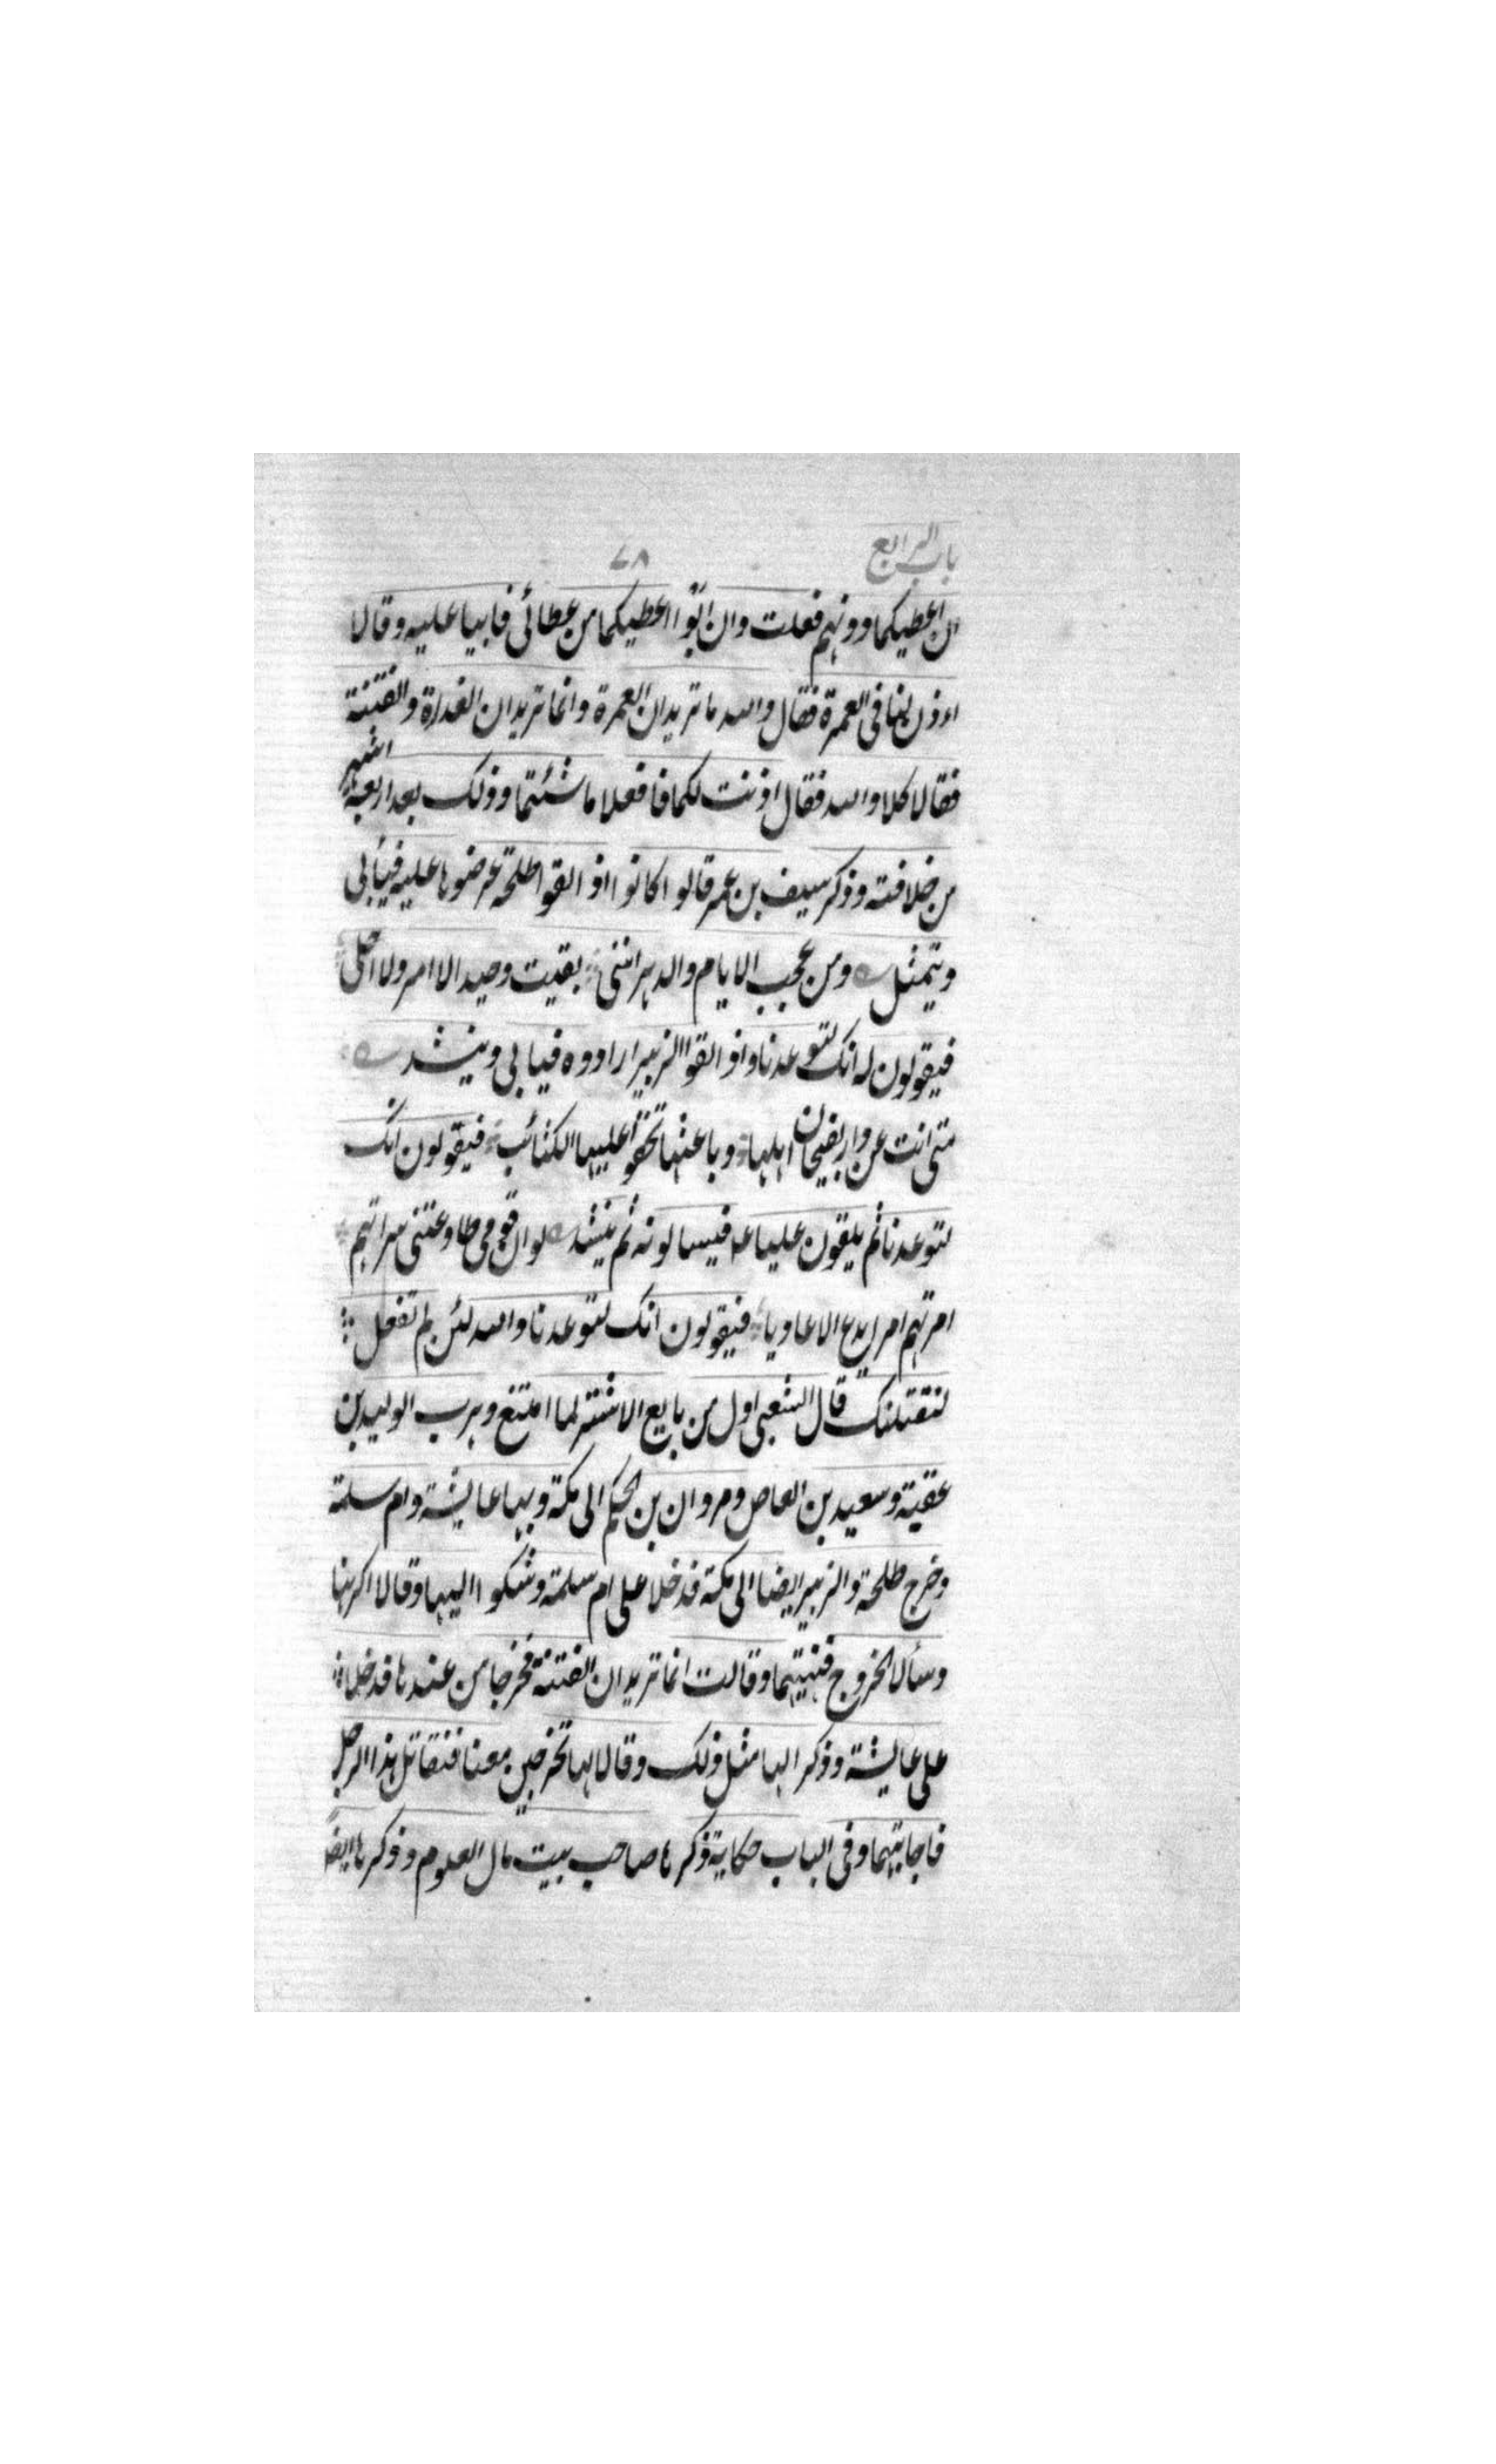 باب الرابع ٧٨
ان اعطيكما دونهم فعلت وان ابوا اعطيكما من عطائى فابيا عليه وقالا
اءذن لنا فى العمرة فقال والله ما تريدان العمرة وانما تريدان الغدرة والفتنة
فقالا كلا والله فقال اذنت لكما فافعلا ما شئتما وذلك بعد اربعة اشهر
من خلافته وذكر سيف بن عمر قالوا كانوا اذا لقوا طلحة عرضوها عليه فيأبى
ويتمثل ومن عجب الايام والدهر اننى بقيت وحيدا لا امر ولا احلى
فيقولون له انك لتوعدنا واذا لقوا الزبير ارادوه فيابى وينشد
متى انت عن دار بفيحان اهلها وباعثها تحفوا عليها الكتائب فيقولون انك
لتوعدنا ثم يلقون عليا ع فيسالونه ثم ينشد لو ان قومى طاوعتنى سراتهم
امرتهم امرا يدع الاعاديا فيقولون انك لتوعدنا والله لئن لم تفعل
لنقتلنك قال الشعبى اول من بايع الاشتر لما امتنع وهرب الوليد بن
عقبة وسعيد بن العاص ومروان بن الحكم الى مكة وبها عايشة وام سلمة
وخرج طلحة والزبير ايضا الى مكة فدخلا على ام سلمة وشكوا اليها وقالا اكرهنا
وسألا الخروج فنهيتهما وقالت انما تريدان الفتنة فخرجا من عندها فدخلا
على عايشة وذكرا لها مثل ذلك وقالا لها تخرجين معنا فنقاتل هذا الرجل
فاجابتهما وفى الباب حكاية ذكرها صاحب بيت مال العلوم وذكرها ايضا